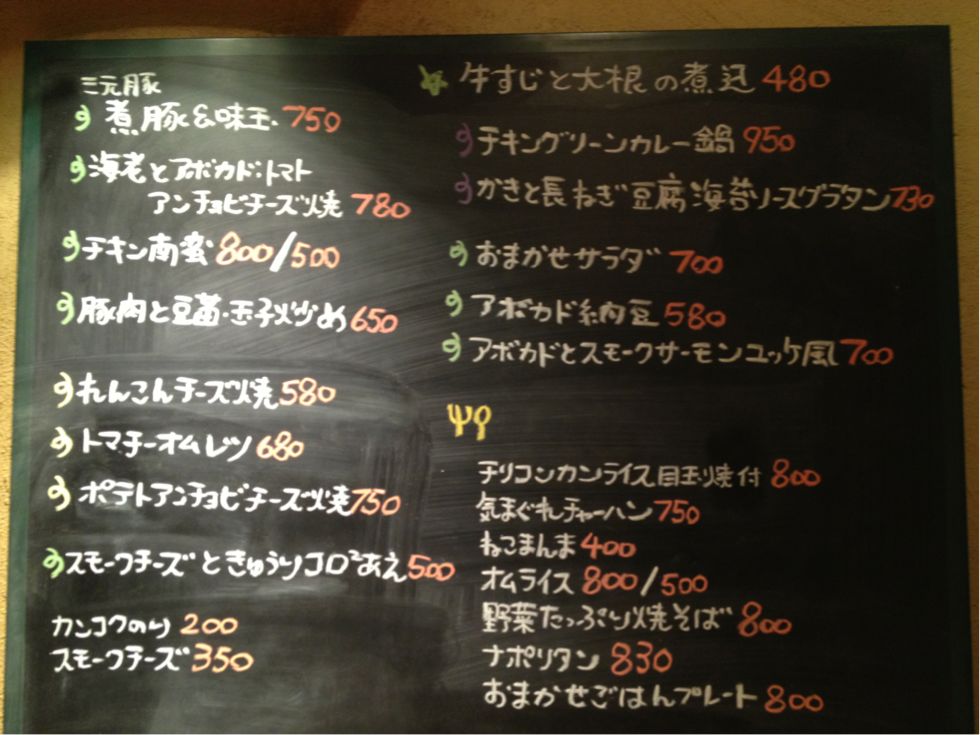 三元豚
煮豚&味玉 750
海老とアボカド:トマト
アンチョビチーズ焼 780
チキン南蛮 800/500
豚肉と豆苗・玉子炒め 650
れんこんチーズ焼 580
トマチーオムレツ 680
ポテトアンチョビチーズ焼 750
スモークチーズときゅうりコロ²あえ 500
カンコクのり 200
スモークチーズ 350
牛すじと大根の煮込 480
チキングリーンカレー鍋 950
かきと長ねぎ豆腐海苔ソースグラタン 730
おまかせサラダ 700
アボカド納豆 580
アボカドとスモークサーモンユッケ風 700
チリコンカンライス目玉焼付 800
気まぐれチャーハン 750
ねこまんま 400
オムライス 800/500
野菜たっぷり焼そば 800
ナポリタン 830
おまかせごはんプレート 800